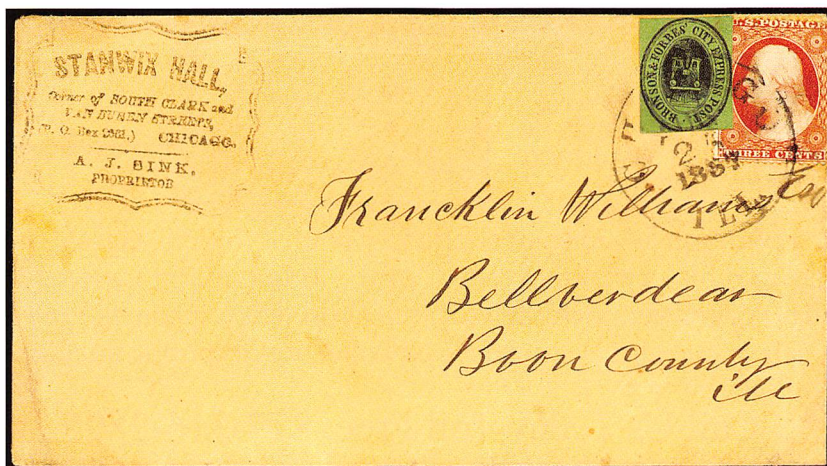 STANWIX HALL,
Corner of SOUTH CLARK and
VAN BUREN STREETS,
(P. O. Box CHICAGO.
A. J. SINK,
PROPRIETOR
BRONSON & FORBES' CITY EXPRESS POST.
U.S. POSTAGE
THREE CENTS
2
185
ILL.
Francklin Williams Esq
Bellverdear
Boon County
ill